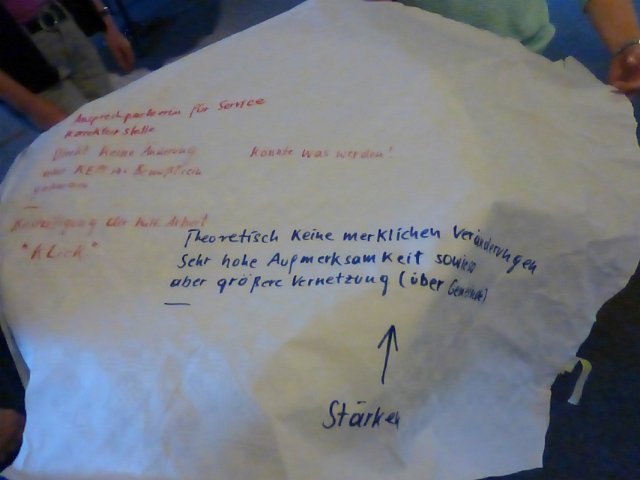 Ansprechpartnerin für Service
Korrekturstelle
Direkt Keine Änderung
aber KEM in Bewußtsein
gekommen
Könnte was werden!
Bewältigung der Arbeit
"Klick"
Theoretisch Keine merklichen Veränderungen
Sehr hohe Aufmerksamkeit sowieso
aber größere Vernetzung (über Gemeinde)
Stärken